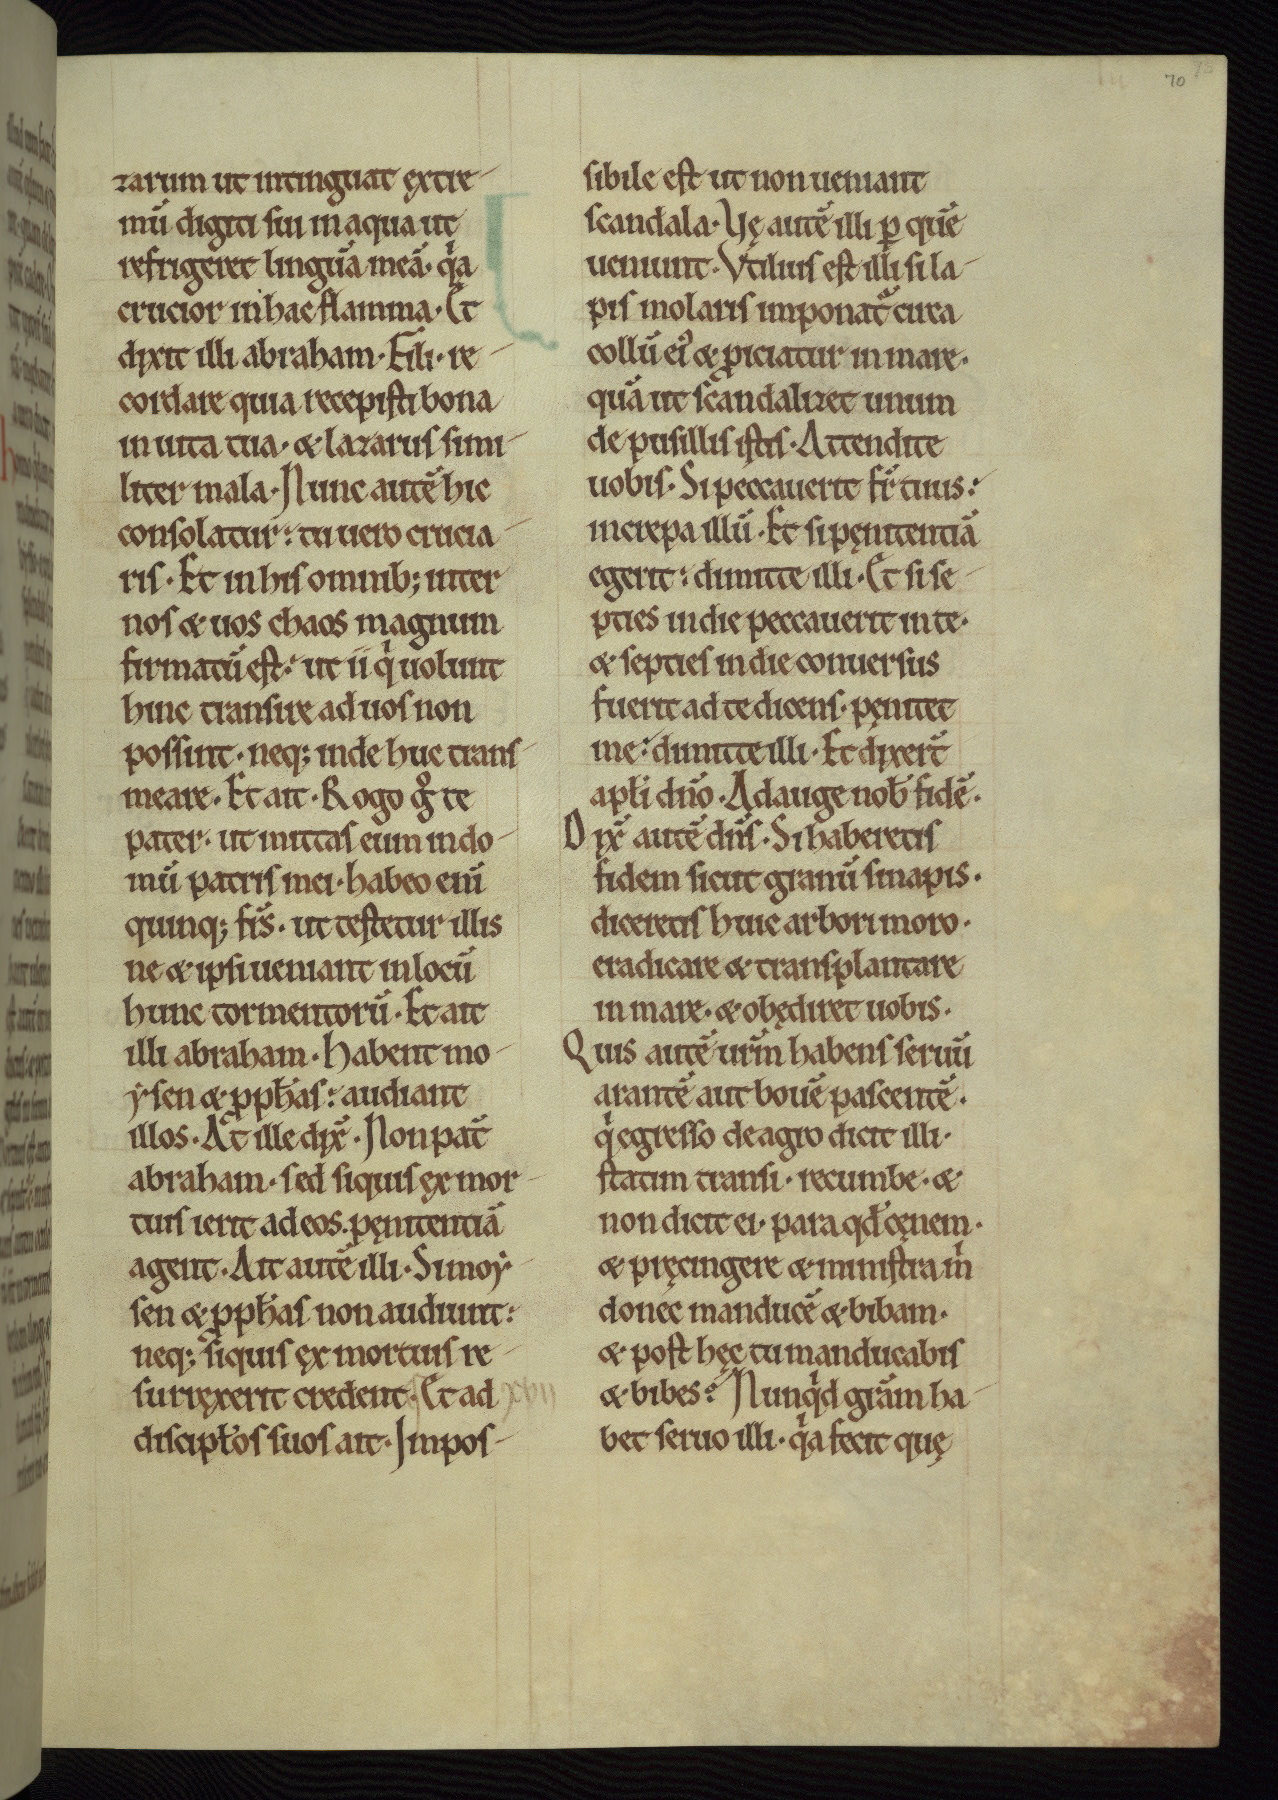 70
zarum ut intinguat extre-
mū digiti sui in aqua ut
refrigeret linguā meā· qͥa
crucior in hac flamma· Et
dixit illi abraham· Fili· re-
cordare quia recepisti bona
in uita tua· & lazarus simi-
liter mala· Nunc autē hic
consolatur: tu uero crucia-
ris· Et in his omnib; inter
nos & uos chaos magnum
firmatū est: ut ii qͥ uolunt
hinc transire ad uos non
possint· neq; inde huc trans-
meare· Et ait· Rogo gͦ te
pater· ut mittas eum in do-
mū patris mei· habeo enī
quinq; frs̄· ut testetur illis
ne & ipsi ueniant in locū
hunc tormentorū· Et ait
illi abraham· habent mo-
ysen & ꝓph̄as: audiant
illos· At ille dix̄· Non pat̄
abraham· sed siquis ex mor-
tuis ierit ad eos· pęnitentiā
agent· Ait autē illi· Si moy-
sen & ꝓph̄as non audiunt:
neq; siquis ex mortuis re-
surrexerit credent· Et ad xvii
discipl̄os suos ait· Impos-
sibile est ut non ueniant
scandala· Vę autē illi ꝑ quē
ueniunt· Vtilius est illi si la-
pis molaris imponat̄ circa
collū eiꝰ & ꝓiciatur in mare·
quā ut scandalizet unum
de pusillis istis· Attendite
uobis· Si peccauerit fr̄ tuus:
increpa illū· Et si pęnitentiā
egerit: dimitte illi· Et si se-
pties in die peccauerit in te·
& septies in die conuersus
fuerit ad te dicens· pęnitet
me: dimitte illi· Et dixer̄t
apl̄i dn̄o· Adauge nob̄ fidē·
Dix̄ autē dn̄s· Si haberetis
fidem sicut granū sinapis·
diceretis huic arbori moro·
eradicare & transplantare
in mare· & obędiret uobis·
Quis autē ur̄m habens seruū
arantē aut bouē pascentē·
qͥ egresso de agro dicit illi·
statim transi· recumbe· &
non dicit ei· para qd̄ cęnem·
& pręcingere & ministra mͥ
donec manducē & bibam·
& post hęc tu manducabis
& bibes: Nunqͥd grām ha-
bet seruo illi· qͥa fecit quę